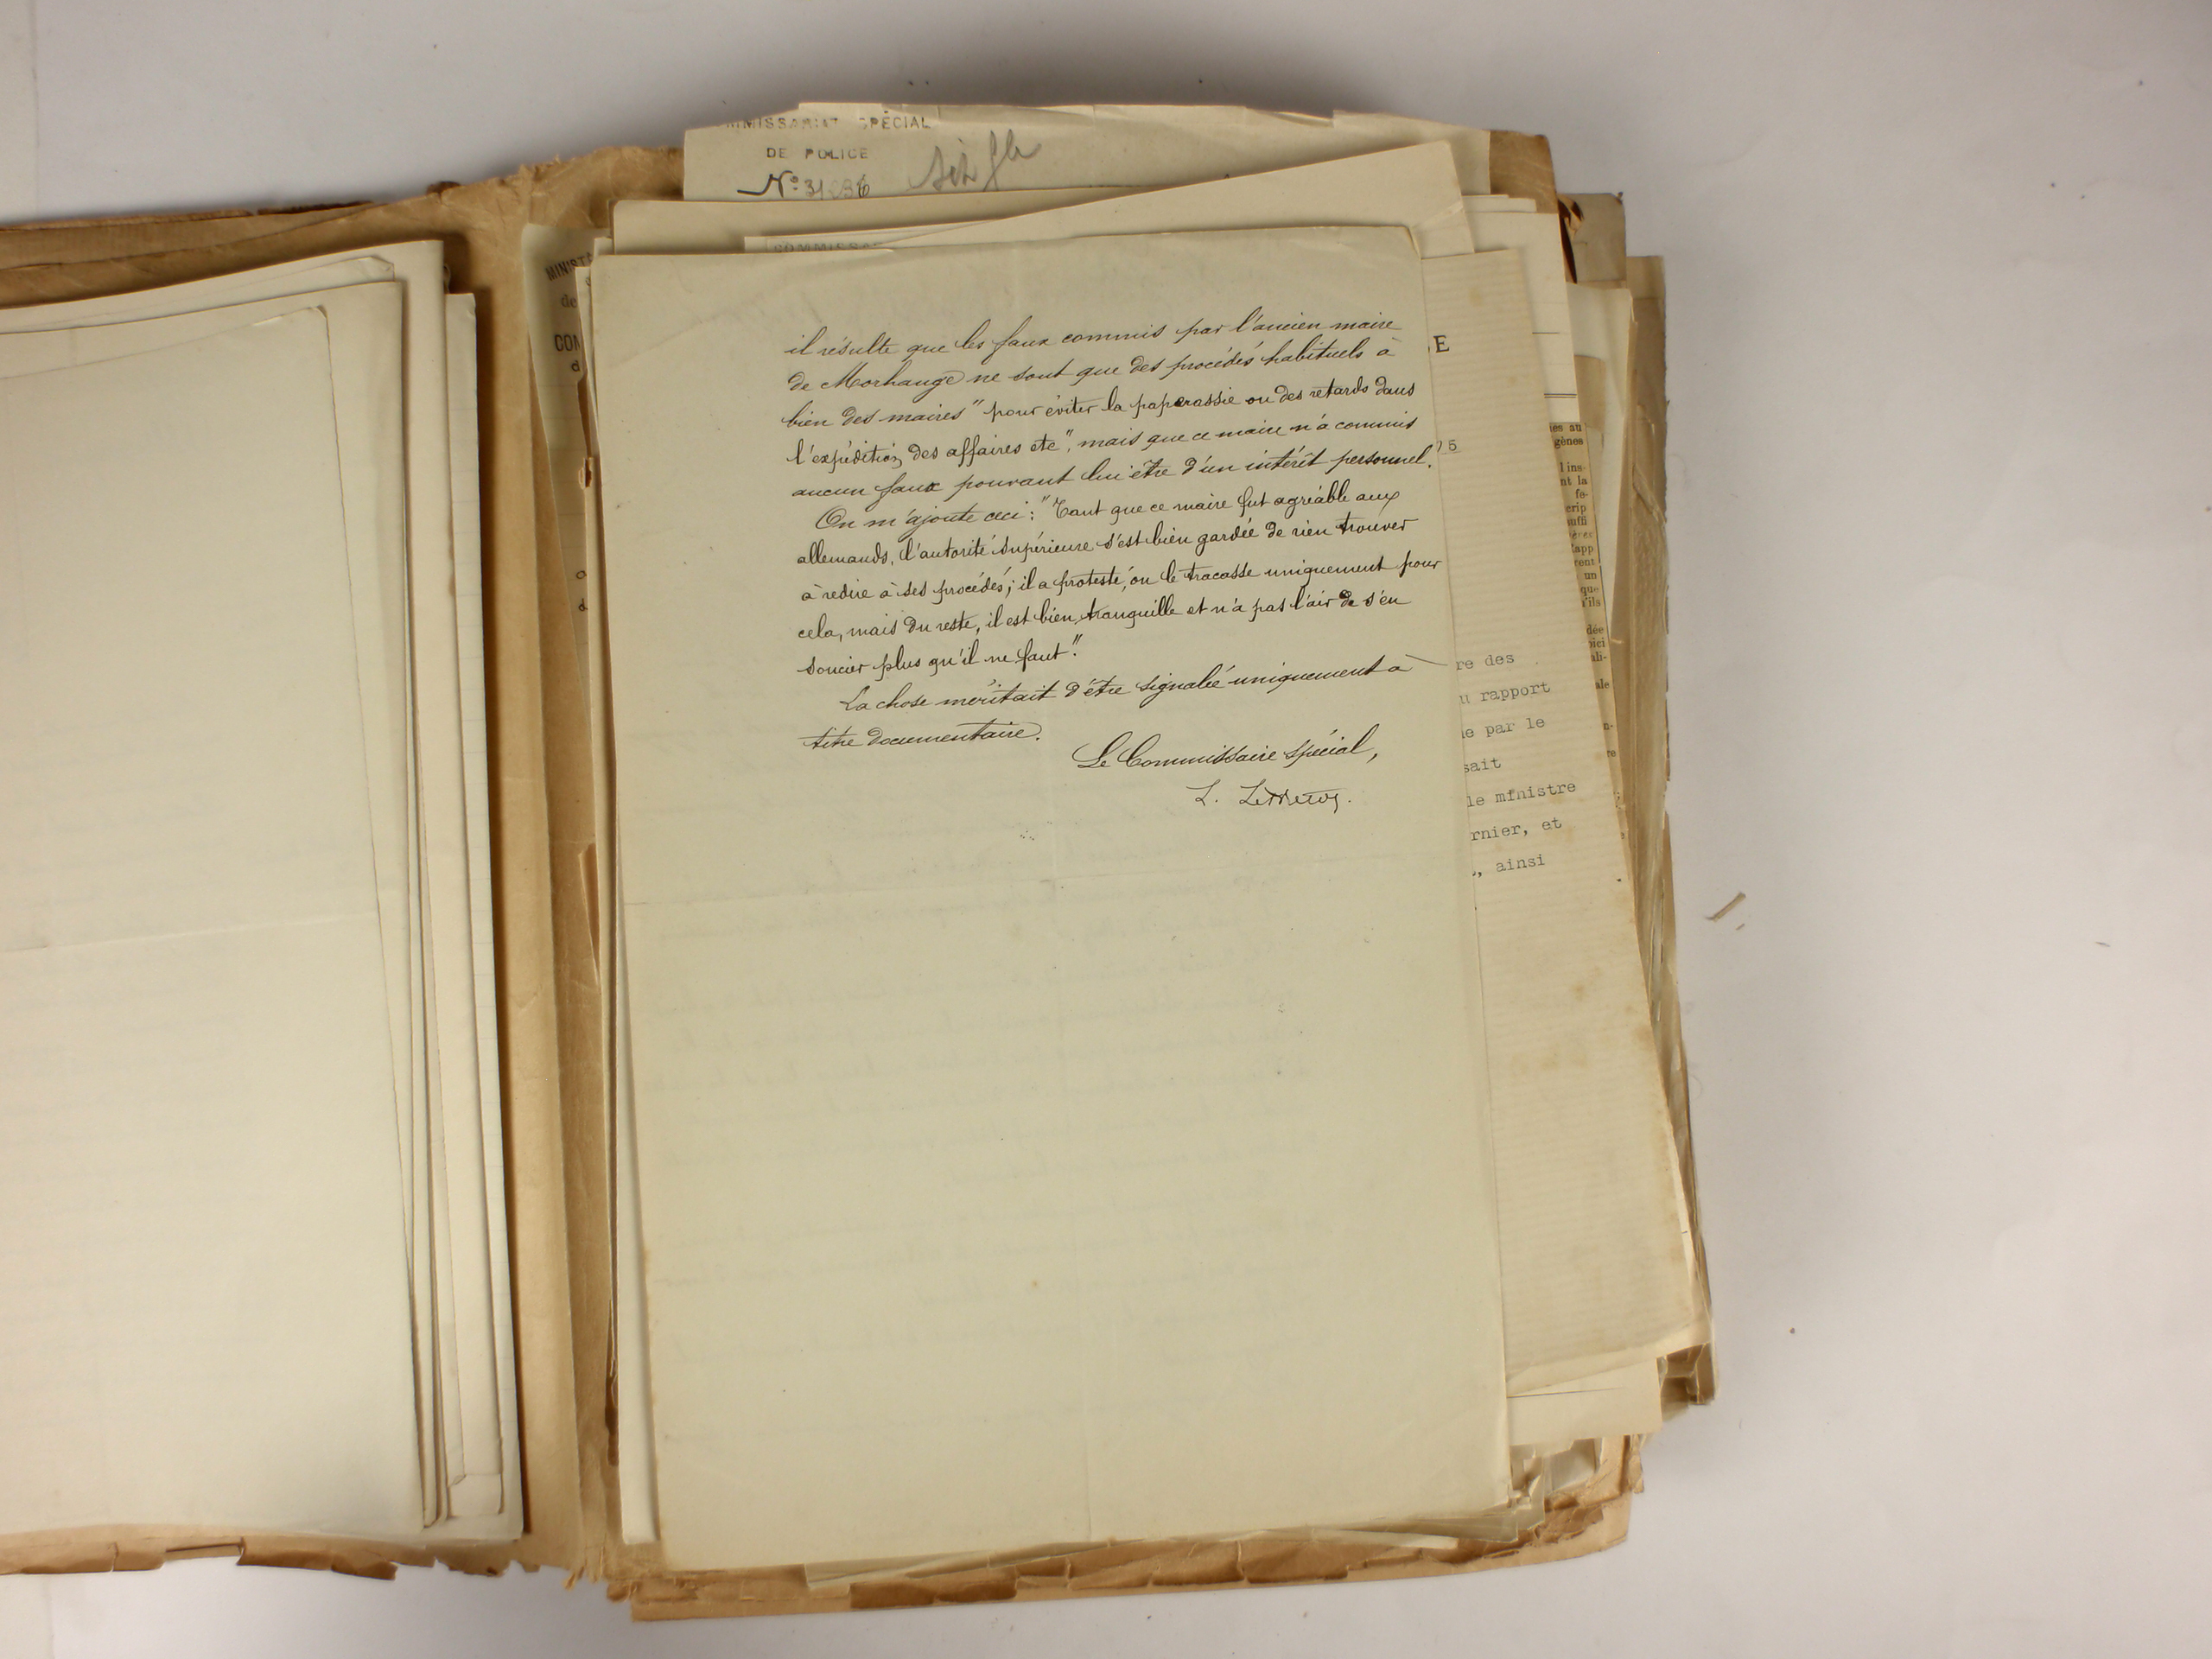 MMISSARIAT SPÉCIAL
DE POLICE
COMMISSA
MINIST
de
CON
il résulte que les faux commis par l'ancien maire
de Morhange ne sont que des procédés habituels à
bien des maires "pour éviter la paperassie ou des retards dans
l'expédition des affaires etc", mais que ce maire n'a commis
aucun faux pouvant lui être d'un intérêt personnel.
On m'ajoute ceci : "Tant que ce maire fut agréable aux
allemands, l'autorité supérieure s'est bien gardée de rien trouver
à redire à ses procédés ; il a protesté, on le tracasse uniquement pour
cela, mais du reste, il est bien tranquille et n'a pas l'air de s'en
soucier plus qu'il ne faut".
La chose méritait d'être signalée uniquement à
titre documentaire.
Le Commissaire spécial,
E
5
re des
u rapport
e par le
sait
le ministre
rnier, et
, ainsi